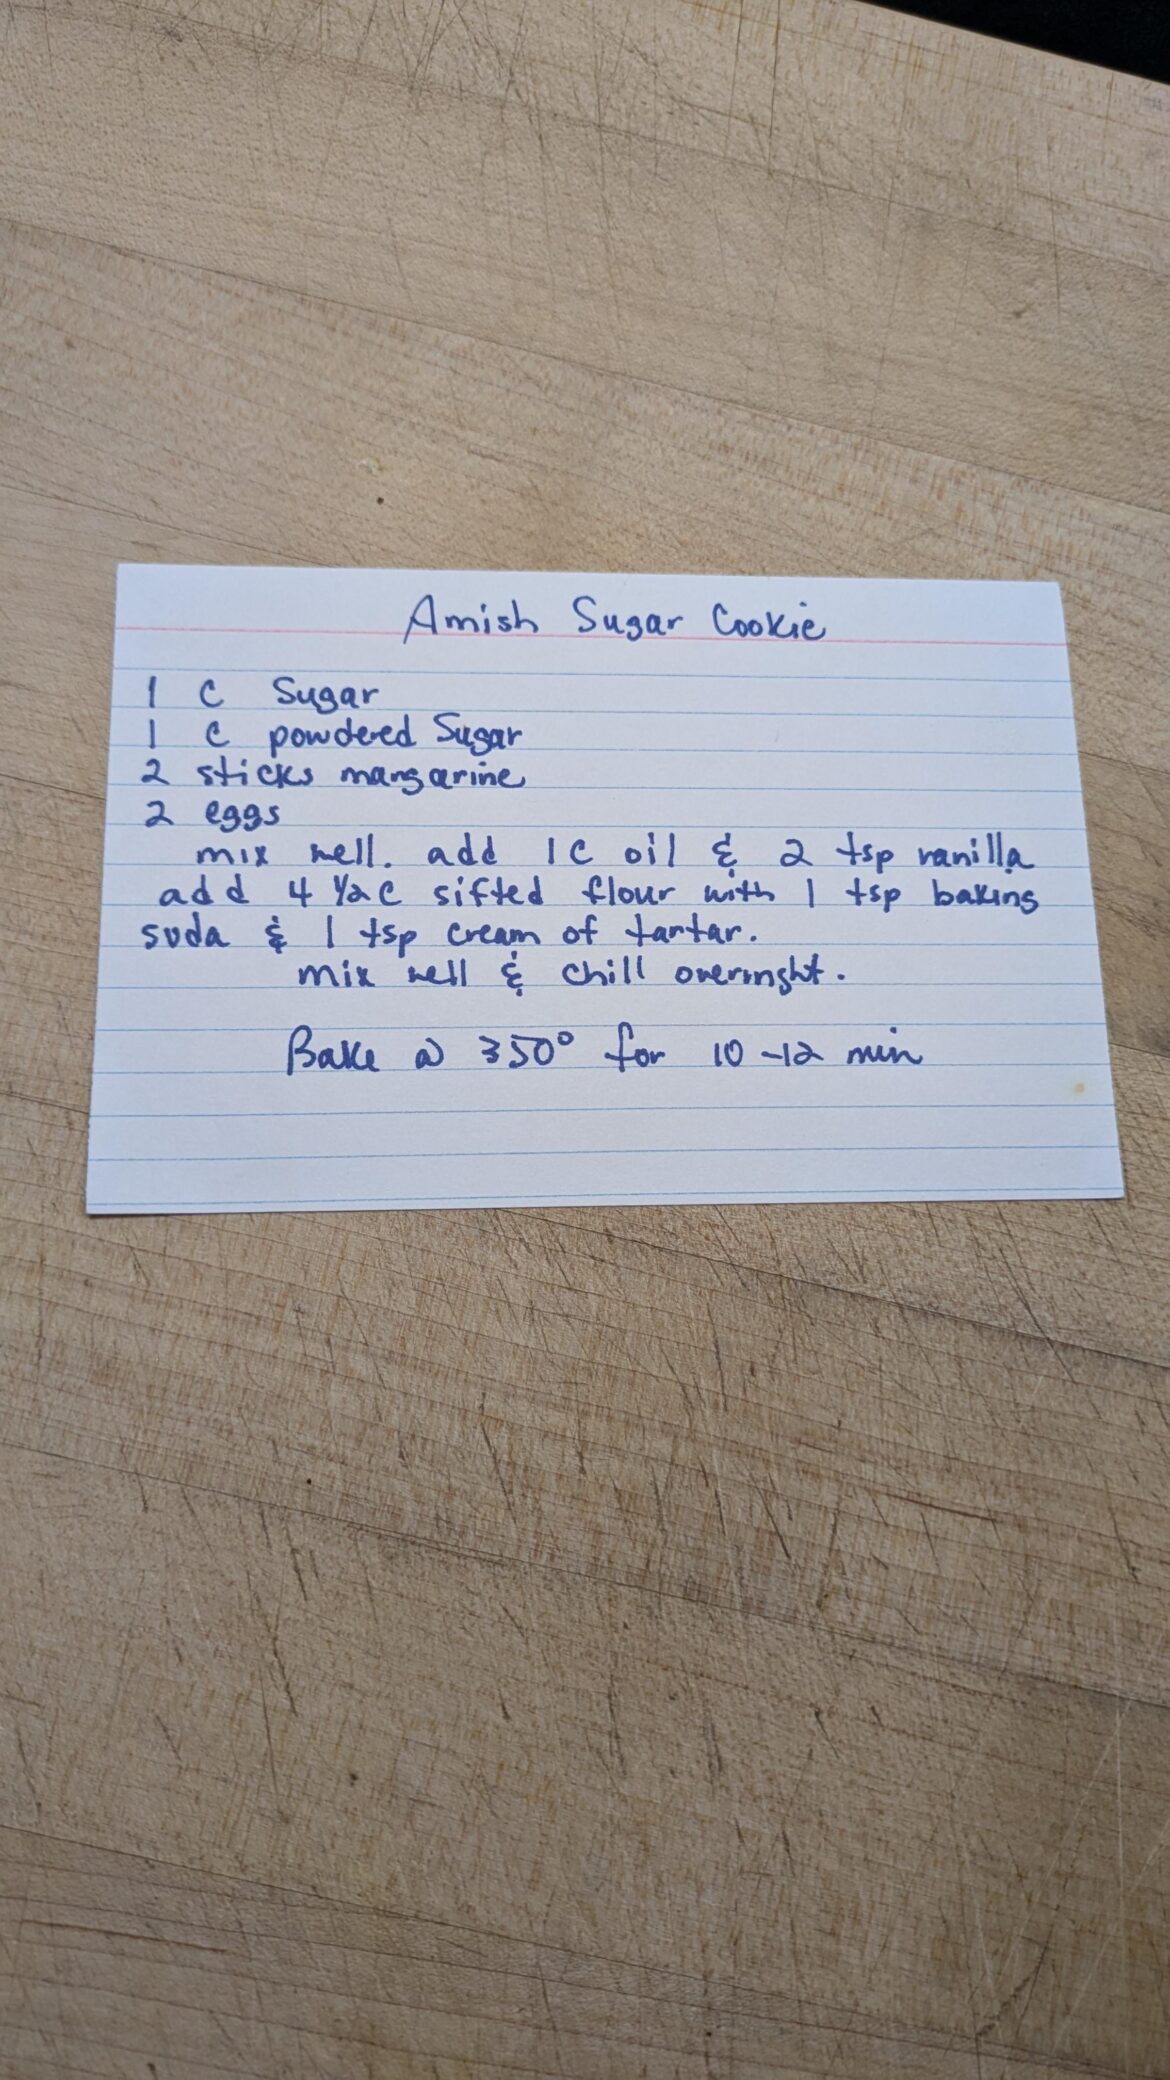 Amish Sugar Cookie
1 C Sugar
1 C powdered Sugar
2 sticks margarine
2 eggs
mix well. add 1C oil & 2 tsp vanilla
add 4 1/2 C sifted flour with 1 tsp baking
soda & 1 tsp cream of tartar.
mix well & chill overnight.
Bake @ 350° for 10-12 min